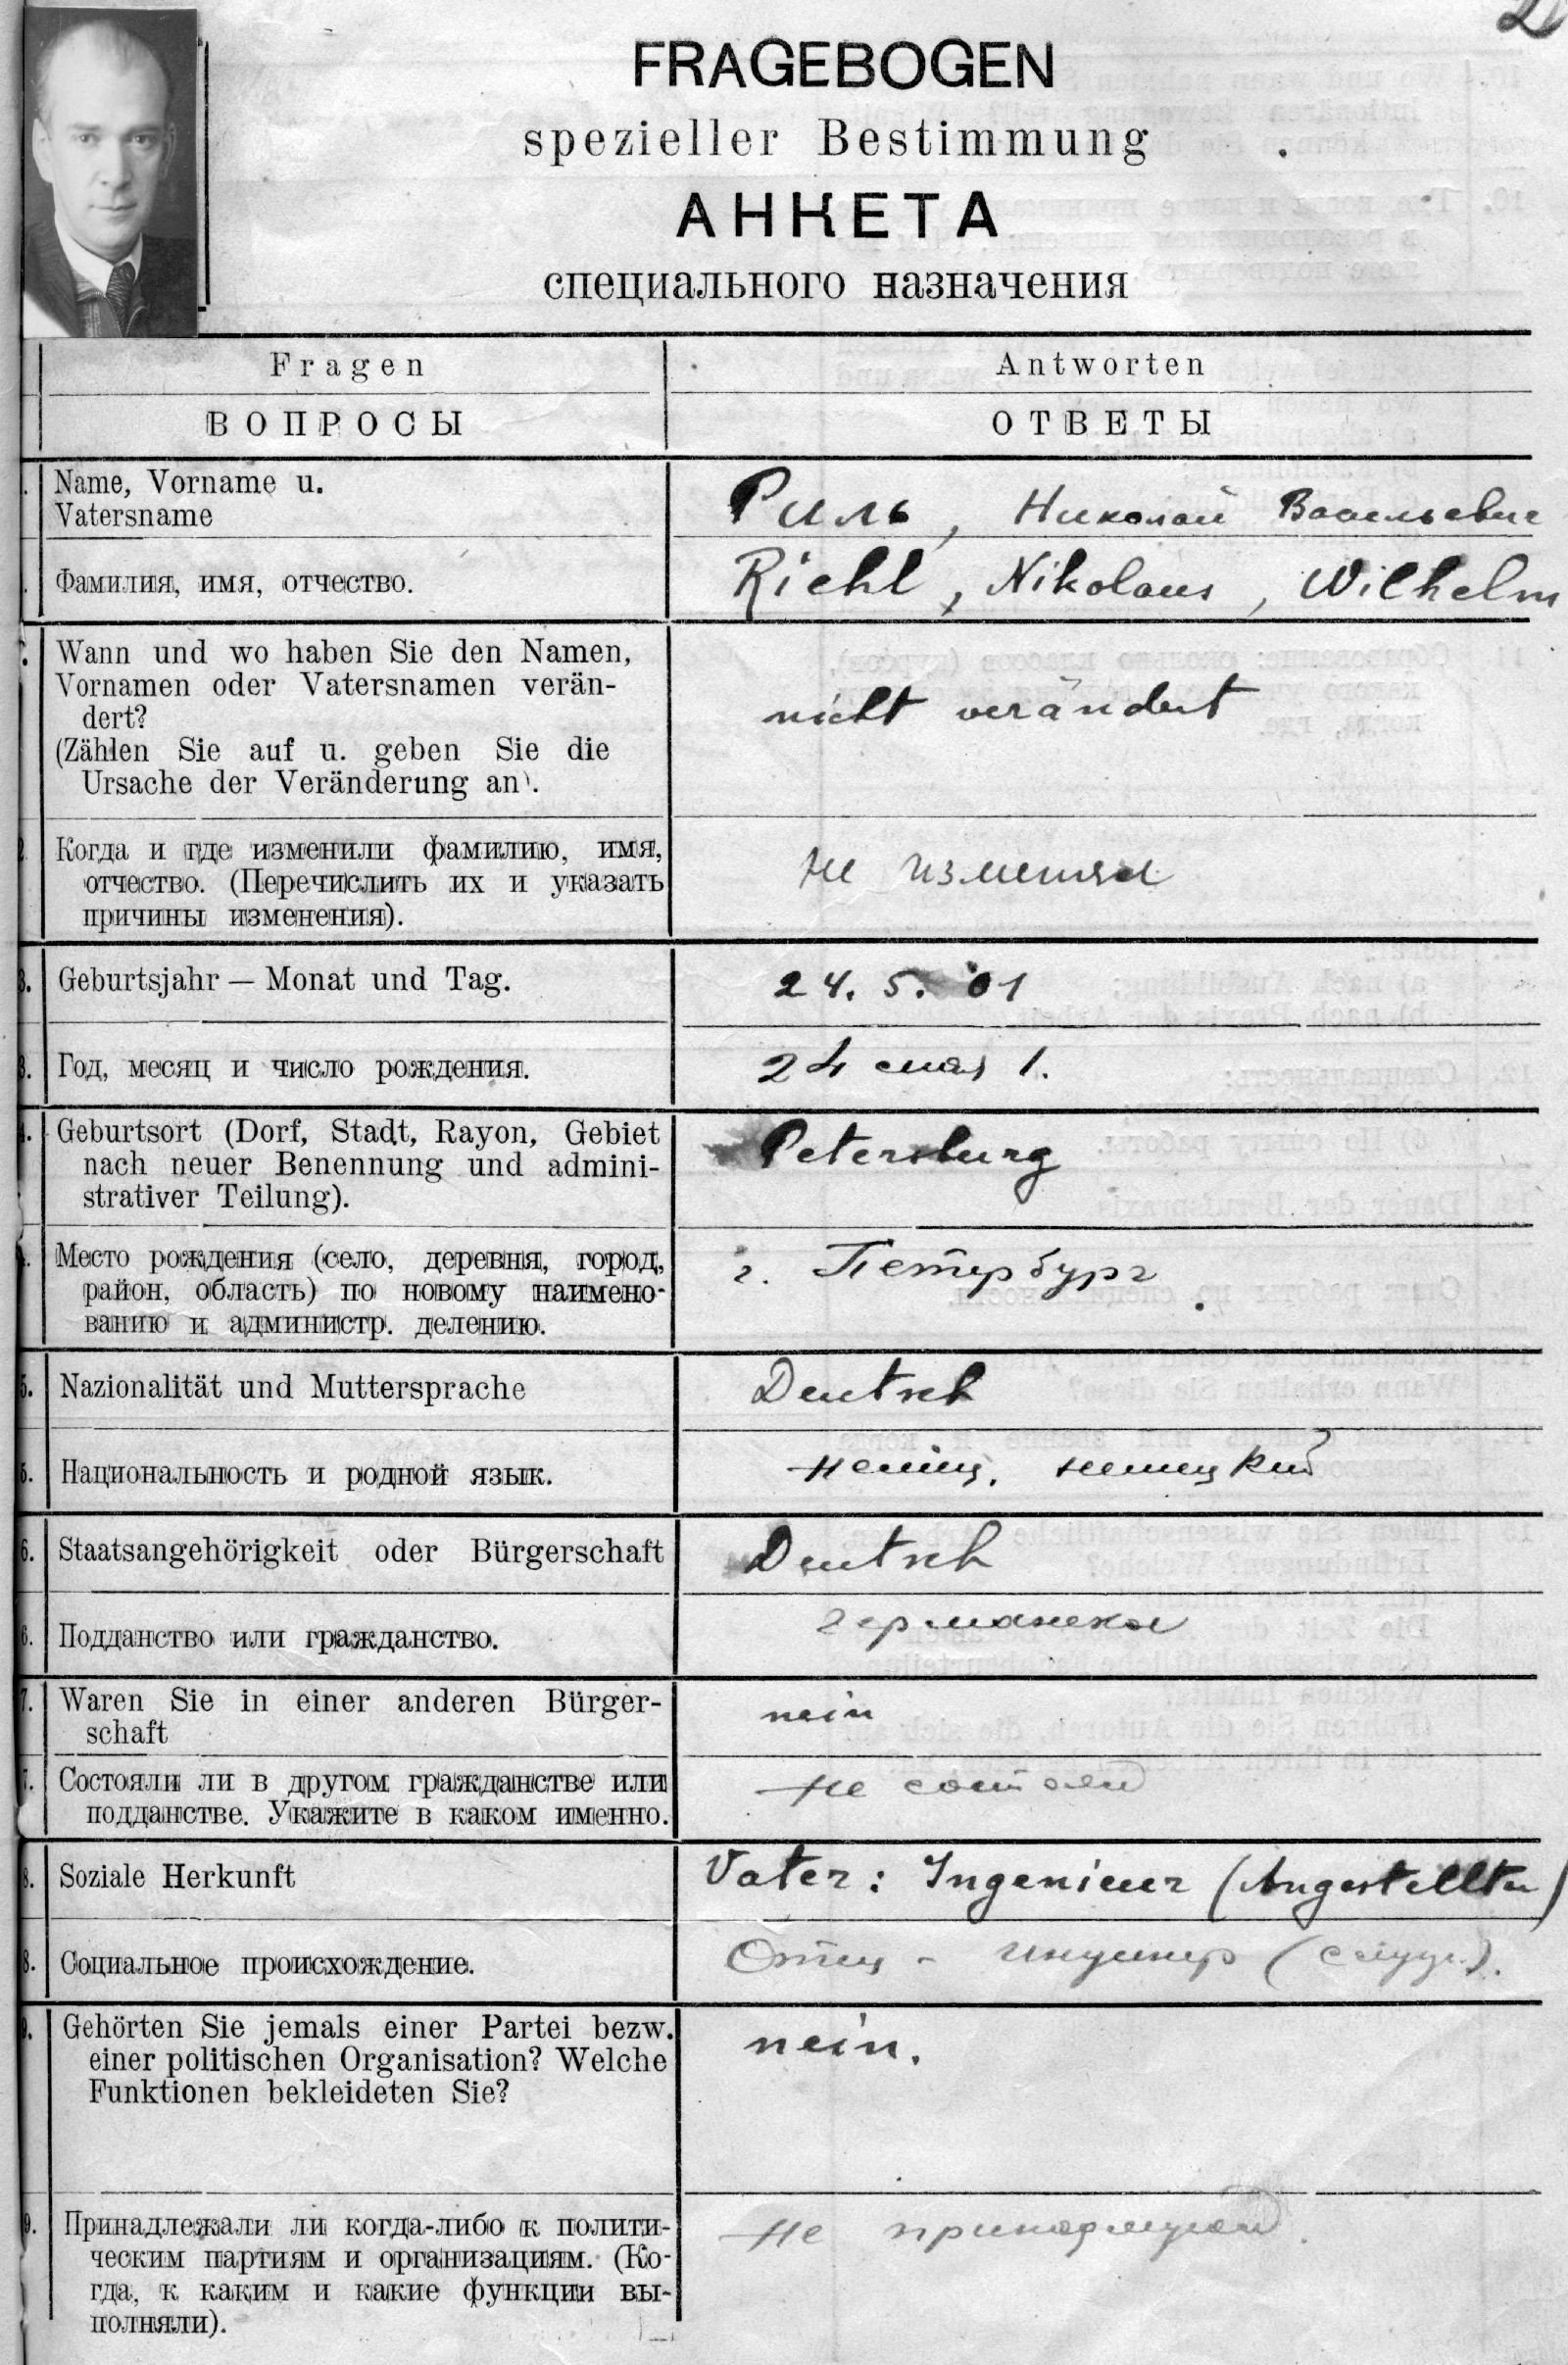 FRAGEBOGEN
spezieller Bestimmung
АНКЕТА
специального назначения
Fragen
Antworten
ВОПРОСЫ
ОТВЕТЫ
Name, Vorname u.
Vatersname
Риль, Николай Васильевич
Фамилия, имя, отчество.
Riehl, Nikolaus, Wilhelm
Wann und wo haben Sie den Namen,
Vornamen oder Vatersnamen verän-
dert?
(Zählen Sie auf u. geben Sie die
Ursache der Veränderung an).
nicht verändert
Когда и где изменили фамилию, имя,
отчество. (Перечислить их и указать
причины изменения).
не изменял
3. Geburtsjahr — Monat und Tag.
24. 5. 01
3. Год, месяц и число рождения.
24 мая 1.
4. Geburtsort (Dorf, Stadt, Rayon, Gebiet
nach neuer Benennung und admini-
strativer Teilung).
Petersburg
4. Место рождения (село, деревня, город,
район, область) по новому наимено-
ванию и администр. делению.
г. Петербург
5. Nazionalität und Muttersprache
Deutsch
5. Национальность и родной язык.
немец, немецкий
6. Staatsangehörigkeit oder Bürgerschaft
Deutsch
6. Подданство или гражданство.
7. Waren Sie in einer anderen Bürger-
schaft
nein
7. Состояли ли в другом гражданстве или
подданстве. Укажите в каком именно.
не состоял
8. Soziale Herkunft
Vater: Ingenieur (Angestellter)
8. Социальное происхождение.
Отец - инженер (служ.).
9. Gehörten Sie jemals einer Partei bezw.
einer politischen Organisation? Welche
Funktionen bekleideten Sie?
nein.
9. Принадлежали ли когда-либо к полити-
ческим партиям и организациям. (Ко-
гда, к каким и какие функции вы-
полняли).
не принадлежал.